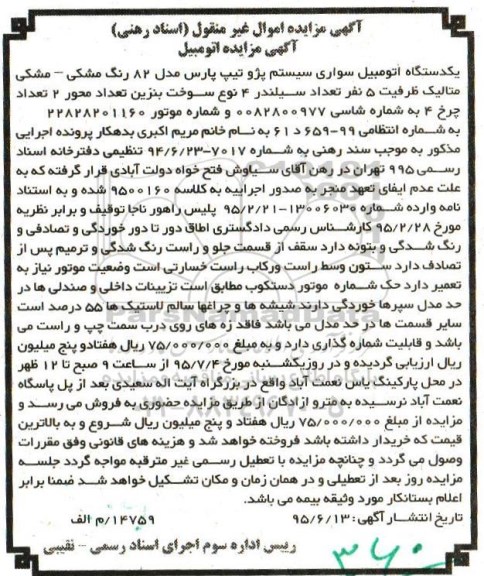 آگهی مزایده اموال غیر منقول (اسناد رهنی)
آگهی مزایده اتومبیل
یکدستگاه اتومبیل سواری سیستم پژو تیپ پارس مدل ۸۲ رنگ مشکی – مشکی
متالیک ظرفیت ۵ نفر تعداد سیلندر ۴ نوع سوخت بنزین تعداد محور ۲ تعداد
چرخ ۴ به شماره شاسی ۰۰۸۲۸۰۰۹۷۷ و شماره موتور ۲۲۸۲۸۲۰۱۱۶۰
به شماره انتظامی ۹۹-۶۵۹ د ۶۱ به نام خانم مریم اکبری بدهکار پرونده اجرایی
مذکور به موجب سند رهنی به شماره ۷۰۱۷-۹۴/۶/۲۳ تنظیمی دفترخانه اسناد
رسمی ۹۹۵ تهران در رهن آقای سیاوش فتح خواه دولت آبادی قرار گرفته که به
علت عدم ایفای تعهد منجر به صدور اجراییه به کلاسه ۹۵۰۰۱۶۰ شده و به استناد
نامه وارده شماره ۱۳۰۰۶۰۳۰-۹۵/۲/۲۱ پلیس راهور ناجا توقیف و برابر نظریه
مورخ ۹۵/۲/۲۸ کارشناس رسمی دادگستری اطاق دور تا دور خوردگی و تصادفی و
رنگ شدگی و بتونه دارد سقف از قسمت جلو و راست رنگ شدگی و ترمیم پس از
تصادف دارد ستون وسط راست ورکاب راست خسارتی است وضعیت موتور نیاز به
تعمیر دارد حک شماره موتور دستکوب مطابق است تزیینات داخلی و صندلی ها در
حد مدل سپرها خوردگی دارند شیشه ها و چراغها سالم لاستیک ها ۵۵ درصد است
سایر قسمت ها در حد مدل می باشد فاقد زه های روی درب سمت چپ و راست می
باشد و قابلیت شماره گذاری دارد و به مبلغ ۷۵/۰۰۰/۰۰۰ ریال هفتادو پنج میلیون
ریال ارزیابی گردیده و در روزیکشنبه مورخ ۹۵/۷/۴ از ساعت ۹ صبح تا ۱۲ ظهر
در محل پارکینگ یاس نعمت آباد واقع در بزرگراه آیت اله سعیدی بعد از پل پاسگاه
نعمت آباد نرسیده به مترو ازادگان از طریق مزایده حضوری به فروش می رسد و
مزایده از مبلغ ۷۵/۰۰۰/۰۰۰ ریال هفتاد و پنج میلیون ریال شروع و به بالاترین
قیمت که خریدار داشته باشد فروخته خواهد شد و هزینه های قانونی وفق مقررات
وصول می گردد و چنانچه مزایده با تعطیل رسمی غیر مترقبه مواجه گردد جلسه
مزایده روز بعد از تعطیلی و در همان زمان و مکان تشکیل خواهد شد ضمنا برابر
اعلام بستانکار مورد وثیقه بیمه می باشد.
تاریخ انتشار آگهی: ۹۵/۶/۱۳ ۱۴۷۵۹/م الف
رییس اداره سوم اجرای اسناد رسمی – نقیبی